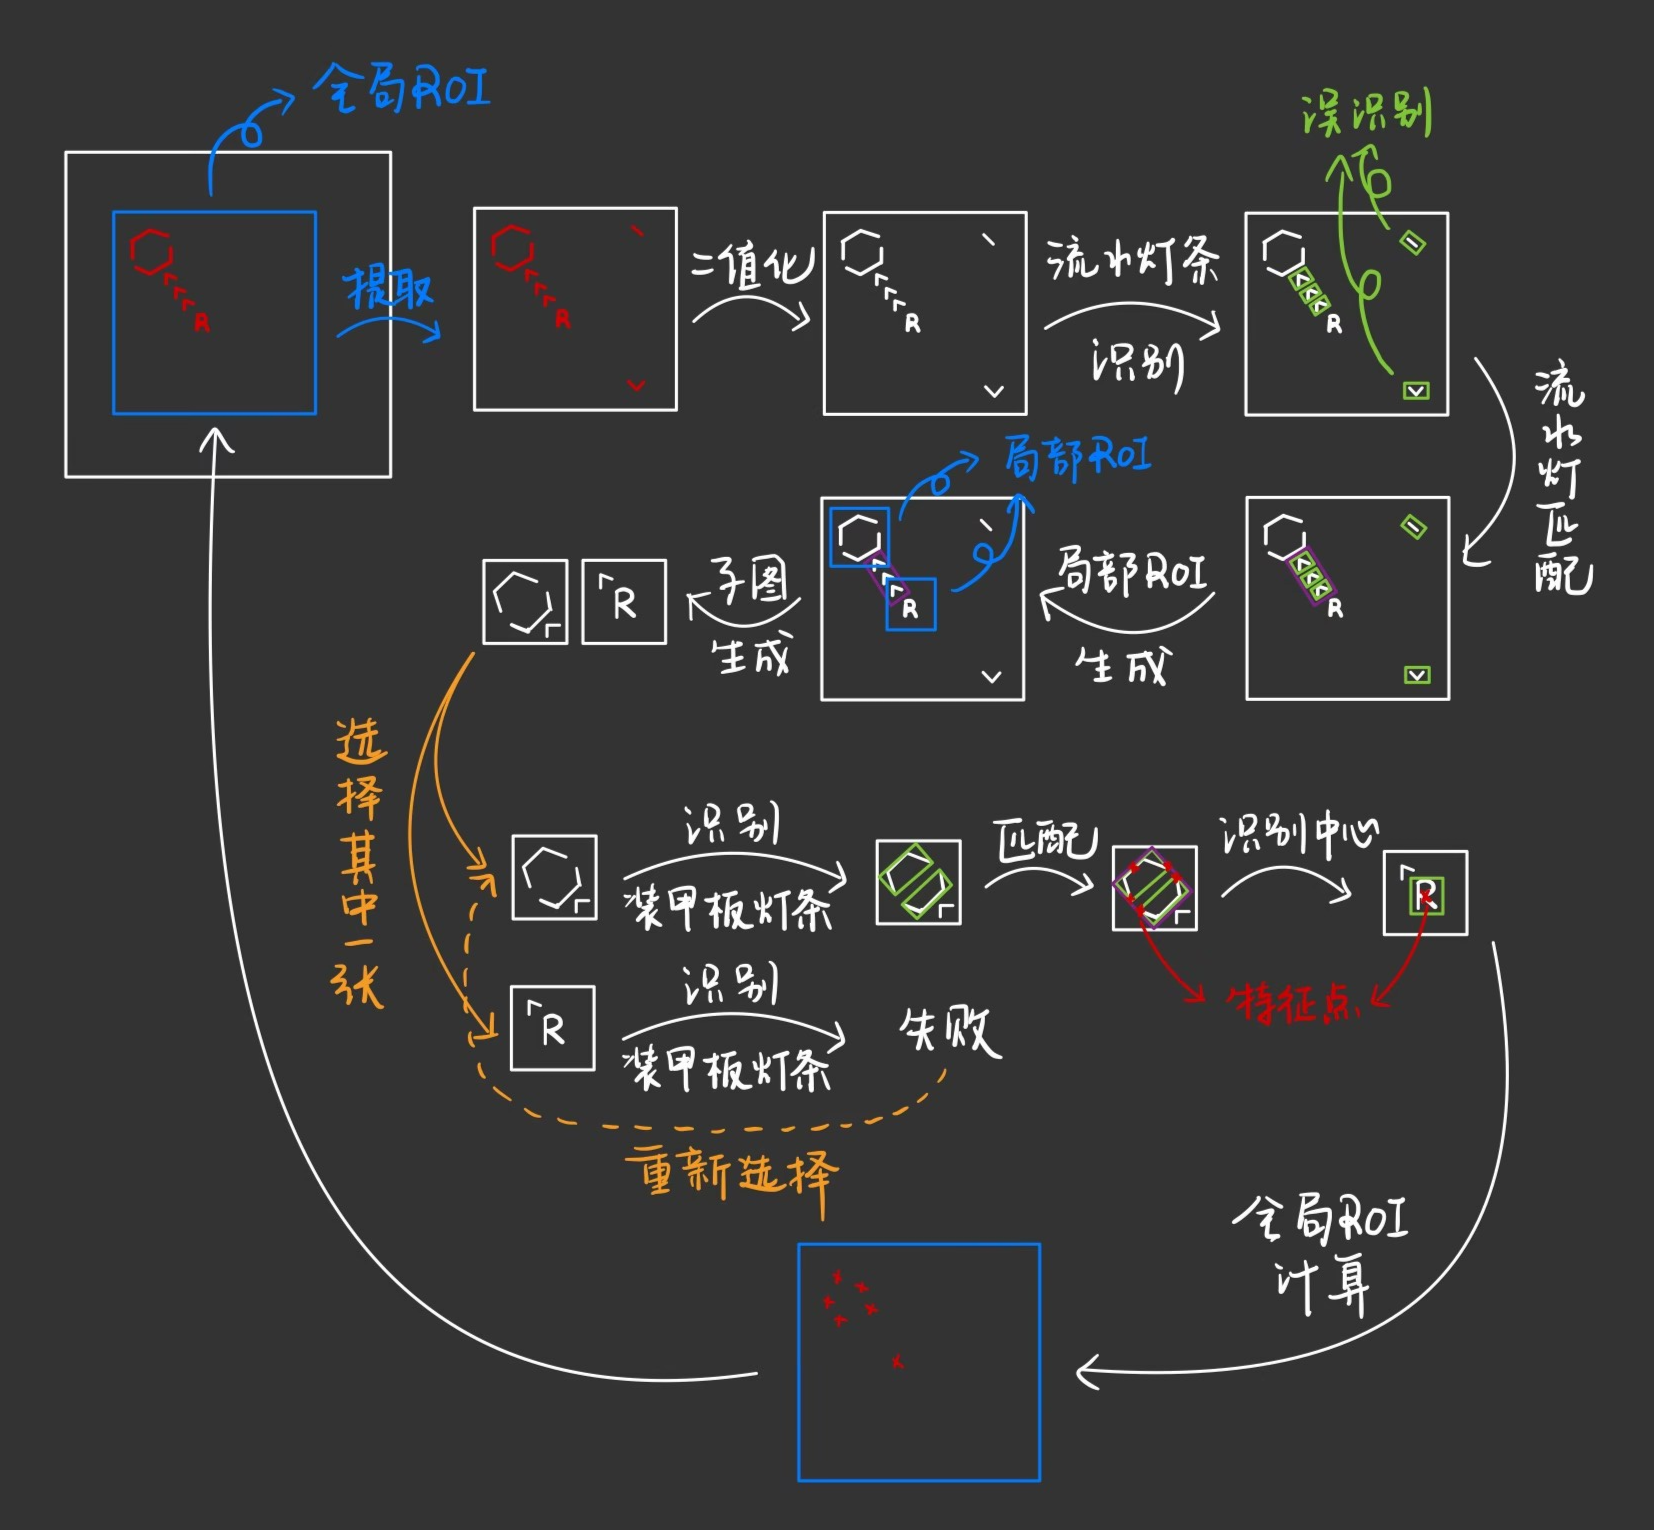 全局ROI
误识别
提取
二值化
流水灯条
识别
R
R
R
R
流水灯匹配
局部ROI
子图
生成
局部ROI
生成
R
R
R
选择其中一张
识别
装甲板灯条
匹配
识别中心
R
特征点
R
识别
装甲板灯条
失败
重新选择
全局ROI
计算